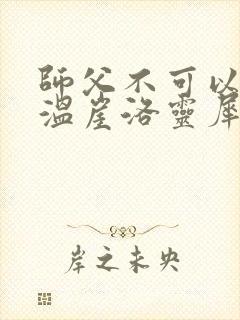 師父不可以
溫崖洛靈犀
岸之未央